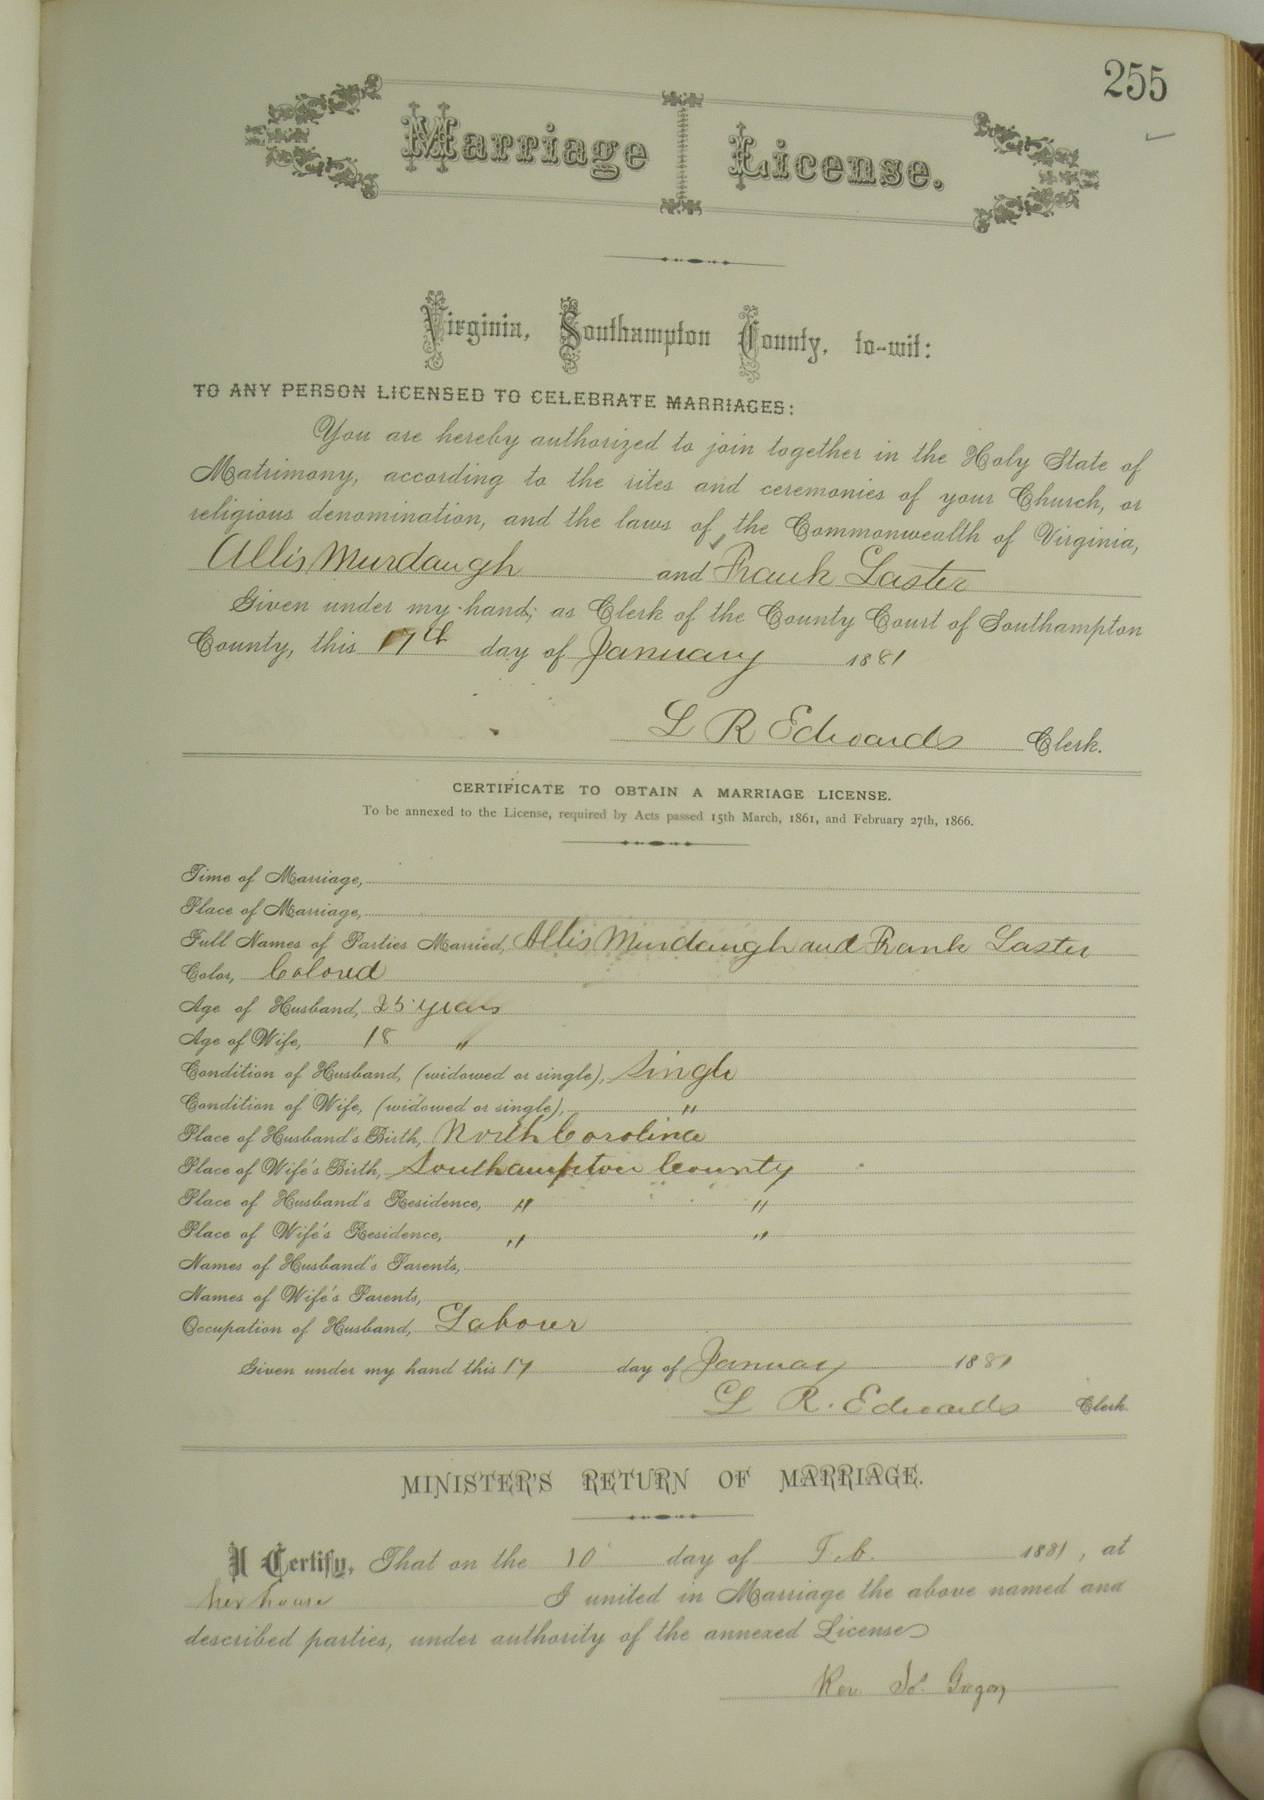 255
Marriage License.
Virginia, Southampton County, to-wit:
TO ANY PERSON LICENSED TO CELEBRATE MARRIAGES:
You are hereby authorized to join together in the Holy State of
Matrimony, according to the rites and ceremonies of your Church, or
religious denomination, and the laws of the Commonwealth of Virginia,
Allis Murdaugh and Frank Laster
Given under my hand, as Clerk of the County Court of Southampton
County, this 17th day of January 1881
L R Edwards Clerk.
CERTIFICATE TO OBTAIN A MARRIAGE LICENSE.
To be annexed to the License, required by Acts passed 15th March, 1861, and February 27th, 1866.
Time of Marriage,
Place of Marriage,
Full Names of Parties Married, Allis Murdaugh and Frank Laster
Color, Colored
Age of Husband, 25 years
Age of Wife, 18 "
Condition of Husband, (widowed or single), Single
Condition of Wife, (widowed or single), "
Place of Husband's Birth, North Carolina
Place of Wife's Birth, Southampton County
Place of Husband's Residence, " "
Place of Wife's Residence, " "
Names of Husband's Parents,
Names of Wife's Parents,
Occupation of Husband, Laborer
Given under my hand this 17 day of January 1881
L R. Edwards Clerk.
MINISTER'S RETURN OF MARRIAGE.
I Certify, That on the 10 day of Feb. 1881, at
her house I united in Marriage the above named and
described parties, under authority of the annexed License
Rev. Jos. Gregory